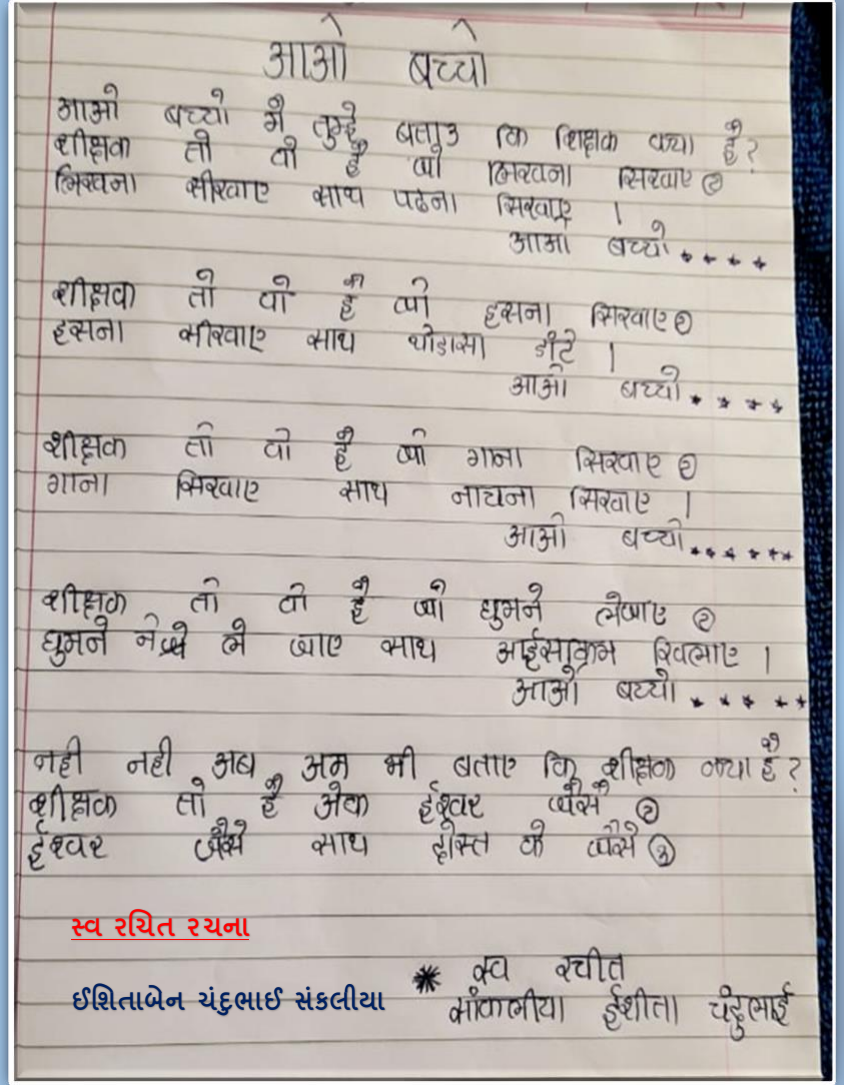 आओ बच्चो
आओ बच्चो मै तुम्हे बताउ कि शिक्षक क्या है?
शीक्षक तो वो है जो लिखना सिखाए २
लिखना सीखाए साथ पढना सिखाए ।
आओ बच्चो....
शीक्षक तो वो है जो हसना सिखाए २
हसना सीखाए साथ थोडासा डाँटे ।
आओ बच्चो....
शीक्षक तो वो है जो गाना सिखाए २
गाना सिखाए साथ नाचना सिखाए ।
आओ बच्चो......
शीक्षक तो वो है जो घुमने लेजाए २
घुमने ले जाए साथ आईसक्रिम खिलाए ।
आओ बच्चो.....
नही नही अब अम भी बताए कि शीक्षक क्या है?
शीक्षक तो है अेक ईश्वर जैसे २
ईश्वर जैसे साथ दोस्त के जैसे ३
સ્વ રચિત રચના
* स्व रचीत
ઈશિતાબેન ચંદુભાઈ સંકલીયા
सांकलीया ईशीता चंदुभाई